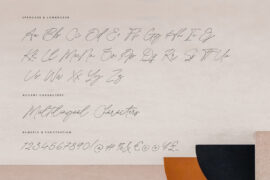 UPPERCASE & LOWERCASE
Aa Bb Cc Dd Ee Ff Gg Hh Ii Jj
Kk Ll Mm Nn Oo Pp Qq Rr Ss Tt Uu
Vv Ww Xx Yy Zz
Multilingual Characters
NUMERALS & PUNCTUATION
1234567890(@#%&